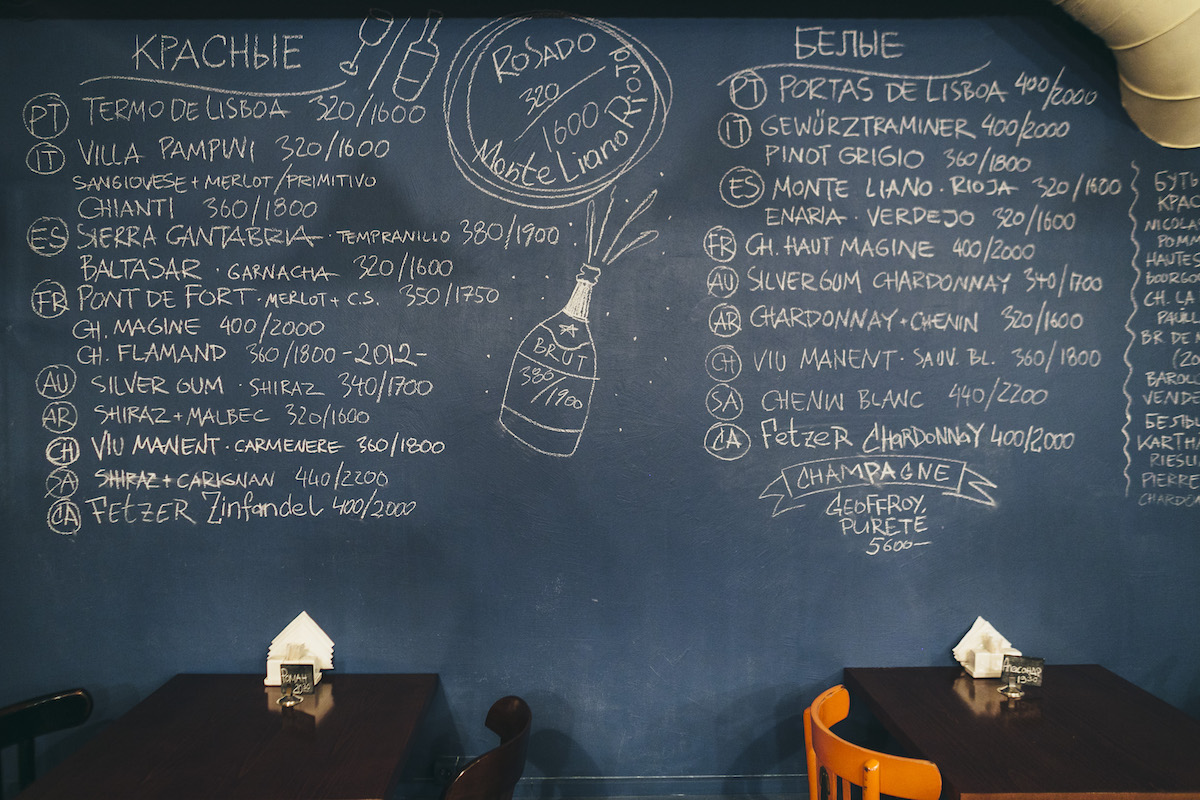 КРАСНЫЕ
PT TERMO DE LISBOA 320/1600
IT VILLA PAMPINI 320/1600
SANGIOVESE + MERLOT / PRIMITIVO
CHIANTI 360/1800
ES SIERRA CANTABRIA · TEMPRANILLO 380/1900
BALTASAR · GARNACHA 320/1600
FR PONT DE FORT · MERLOT + C.S. 350/1750
CH. MAGINE 400/2000
CH. FLAMAND 360/1800 -2012-
AU SILVER GUM · SHIRAZ 340/1700
AR SHIRAZ + MALBEC 320/1600
CH VIU MANENT · CARMENERE 360/1800
SA SHIRAZ + CARIGNAN 440/2200
CA FETZER Zinfandel 400/2000
ROSADO
320/1600
Monte Liano Rioja
BRUT
380/1900
БЕЛЫЕ
PT PORTAS DE LISBOA 400/2000
IT GEWÜRZTRAMINER 400/2000
PINOT GRIGIO 360/1800
ES MONTE LIANO · RIOJA 320/1600
ENARIA · VERDEJO 320/1600
FR CH. HAUT MAGINE 400/2000
AU SILVERGUM CHARDONNAY 340/1700
AR CHARDONNAY + CHENIN 320/1600
CH VIU MANENT · SAUV. BL. 360/1800
SA CHENIN BLANC 440/2200
CA FETZER CHARDONNAY 400/2000
CHAMPAGNE
GEOFFROY,
PURETE
5600—
БУТЬ
КРАС
NICOLA
POMM
HAUTES
BOURGO
CH. LA
PAUIL
BR DE
BAROL
VENDE
БЕЛЫ
KARTHA
RIESLI
PIERRE
CHARDO
РОМАН